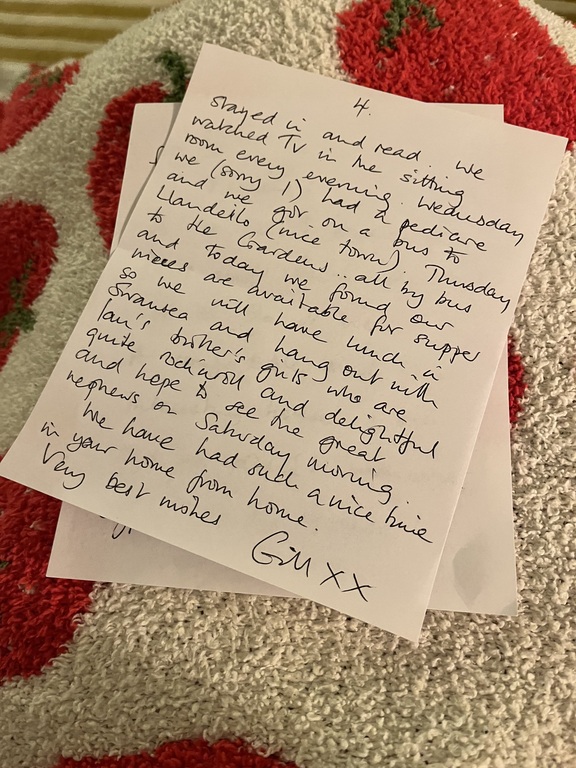 4.
stayed in and read. We
watched TV in the sitting
room every evening. Wednesday
we (sorry I) had a pedicure
and we got on a bus to
Llandeilo (nice town). Thursday
to the Gardens .. all by bus
and today we found our
nieces are available for supper
so we will have lunch in
Swansea and hang out with
Ian's brother's girls who are
quite rock'n'roll and delightful
and hope to see the great
nephews on Saturday morning.
We have had such a nice time
in your home from home.
Very best wishes
Gill XX